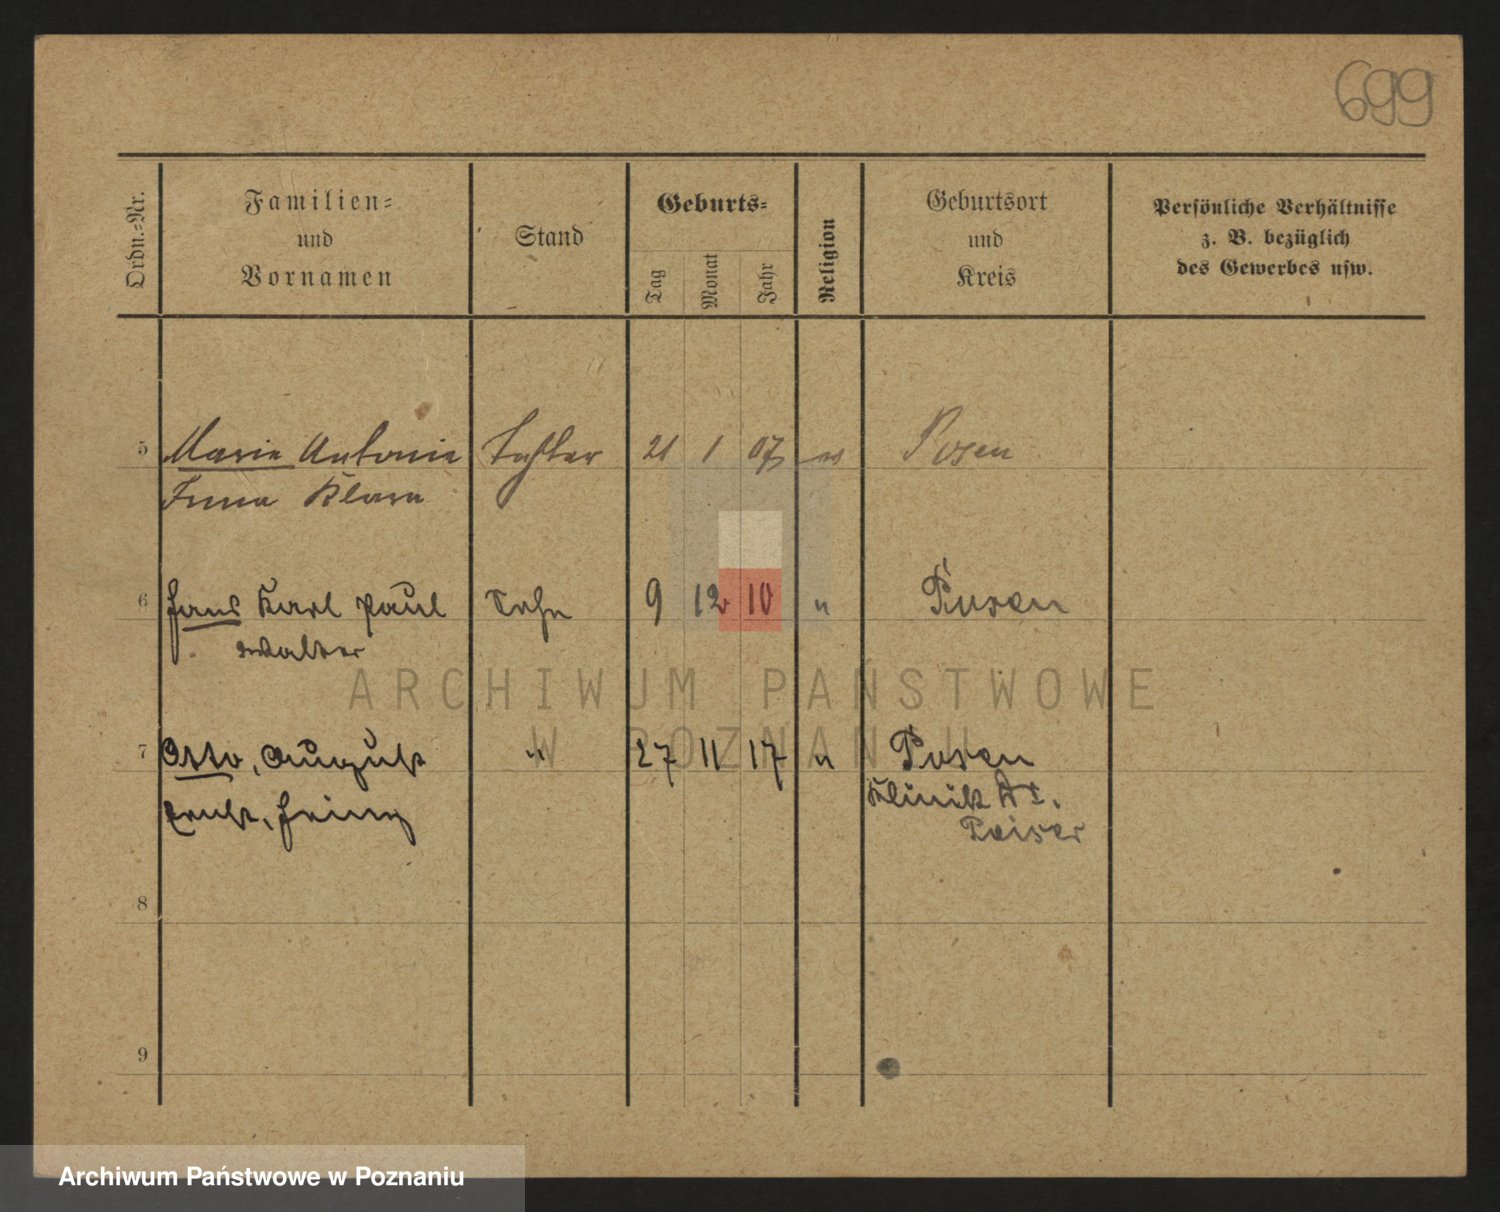 699
Ordn.-Nr.
Familien-
und
Vornamen
Stand
Geburts-
Tag
Monat
Jahr
Religion
Geburtsort
und
Kreis
Persönliche Verhältnisse
z. B. bezüglich
des Gewerbes usw.
5 Marie Antonie Tochter 21 1 07 Posen
Irma Klara
6 Hans Karl Paul Sohn 9 12 10 " Posen
Walter
7 Otto, August " 27 11 17 " Posen
Ernst, Heinz Klinik Dr.
Peiser
8
9
ARCHIWUM PAŃSTWOWE
W POZNANIU
Archiwum Państwowe w Poznaniu